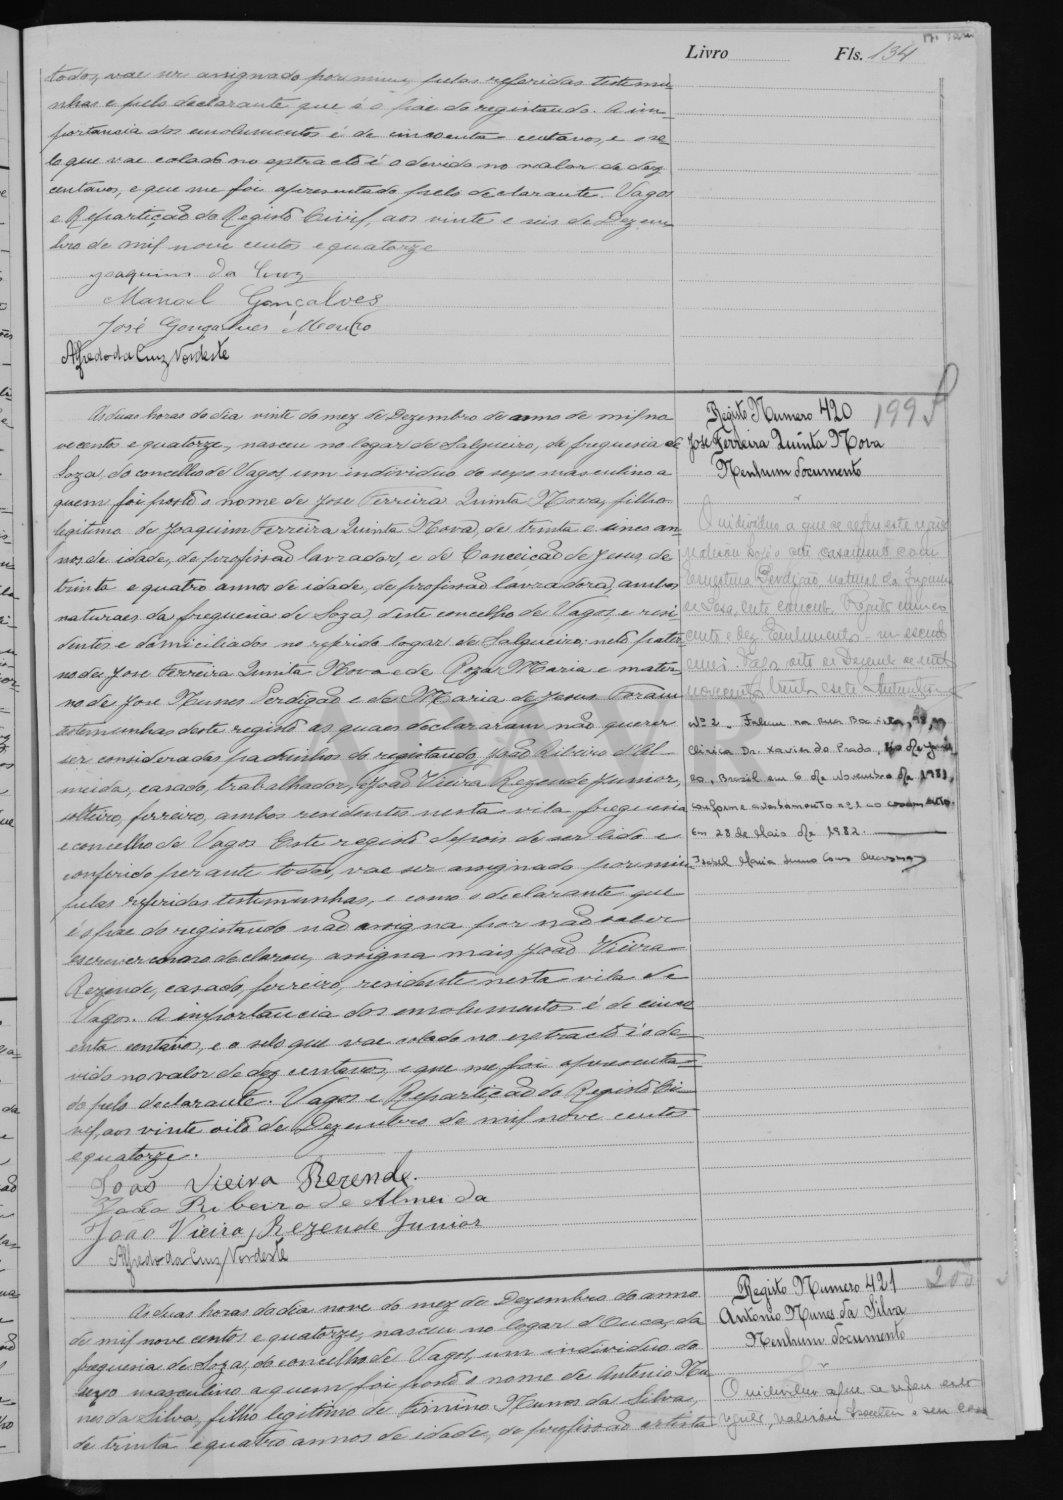 Livro Fls. 134
todos, vae ser assignado por mim, pelas referidas testemu-
nhas e pelo declarante que é o pae do registando. A im-
portancia dos emolumentos é de cincoenta centavos, e o se-
lo que vae colado no extracto é o devido no valor de dez
centavos, e que me foi apresentado pelo declarante. Vagos
e Repartição do Registo Civil, aos vinte e seis de Dezem-
bro de mil nove centos e quatorze
Joaquim da Cruz
Manoel Gonçalves
José Gonçalves Mouro
Alfredo da Cruz Nordeste
Registo Numero 420 199
José Ferreira Quinta Nova
Nenhum documento
Ás duas horas do dia vinte do mez de Dezembro do anno de mil no-
vecentos e quatorze, nasceu no logar de Salgueiro, da freguesia de
Soza, do concelho de Vagos, um individuo do sexo masculino a
quem foi posto o nome de José Ferreira Quinta Nova, filho
legitimo de Joaquim Ferreira Quinta Nova, de trinta e cinco an-
nos de idade, de profissão lavrador, e de Conceição de Jesus, de
trinta e quatro annos de idade, de profissão lavradora, ambos
naturaes da freguesia de Soza, deste concelho de Vagos e resi-
dentes e domiciliados no referido logar de Salgueiro; neto pater-
no de José Ferreira Quinta Nova e de Roza Maria e mater-
no de José Nunes Perdigão e de Maria de Jesus. Foram
testemunhas deste registo as quaes declararam não querer
ser consideradas padrinhos do registando, João Ribeiro d'Al-
meida, casado, trabalhador, e João Vieira Rezende Junior,
solteiro, ferreiro, ambos residentes nesta vila, freguesia
e concelho de Vagos. Este registo depois de ser lido e
conferido perante todos, vae ser assignado por mim
pelas referidas testemunhas, e como o declarante que
é o pae do registando não assigna por não saber
escrever como declarou, assigna mais João Vieira
Rezende, casado, ferreiro, residente nesta vila de
Vagos. A importancia dos emolumentos é de cinco-
enta centavos, e o selo que vae colado no extracto é o de-
vido no valor de dez centavos, e que me foi apresenta-
do pelo declarante. Vagos e Repartição do Registo Ci-
vil, aos vinte oito de Dezembro de mil nove centos
e quatorze.
João Vieira Rezende.
João Ribeiro de Almeida
João Vieira Rezende Junior
Alfredo da Cruz Nordeste
O individuo a que se refere este registo
casamento com
Ernestina Perdigão, natural da freguesia
de Soza, deste concelho. Registo numero
cento e dez.
Vagos, sete de Dezembro de mil
novecentos trinta e sete
Nº 2 - Faleceu na Rua
Clinica Dr. Xavier do Prado, Rio de Janei-
ro, Brasil em 6 de Novembro de 1981,
conforme averbamento nº 1 ao
Em 28 de Maio de 1982.
Isabel Maria
Registo Numero 421 200
Antonio Nunes da Silva
Nenhum documento
Ás duas horas do dia nove do mez de Dezembro do anno
de mil nove centos e quatorze, nasceu no logar d'Ouca, da
freguesia de Soza, do concelho de Vagos, um individuo do
sexo masculino a quem foi posto o nome de Antonio Nu-
nes da Silva, filho legitimo de Firmino Nunes da Silva,
de trinta e quatro annos de idade, de profissão artista
O individuo a que se refere este
registo,